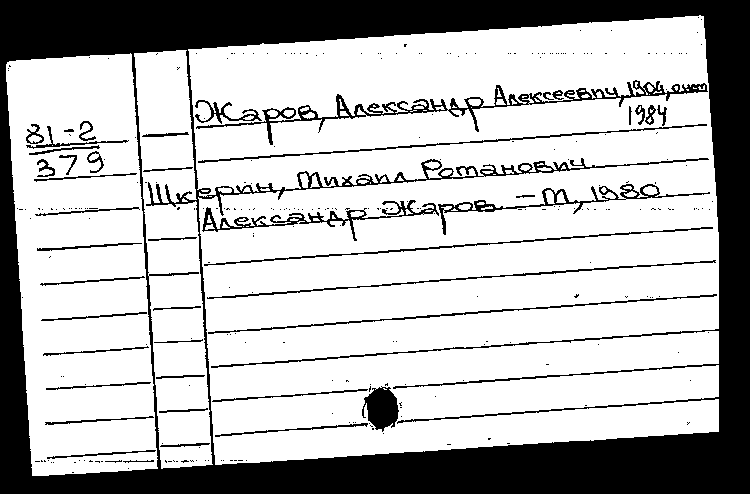 Жаров, Александр Алексеевич, 1904, окт
1984
81-2
379
Шкерин, Михаил Романович.
Александр Жаров. – М, 1980.